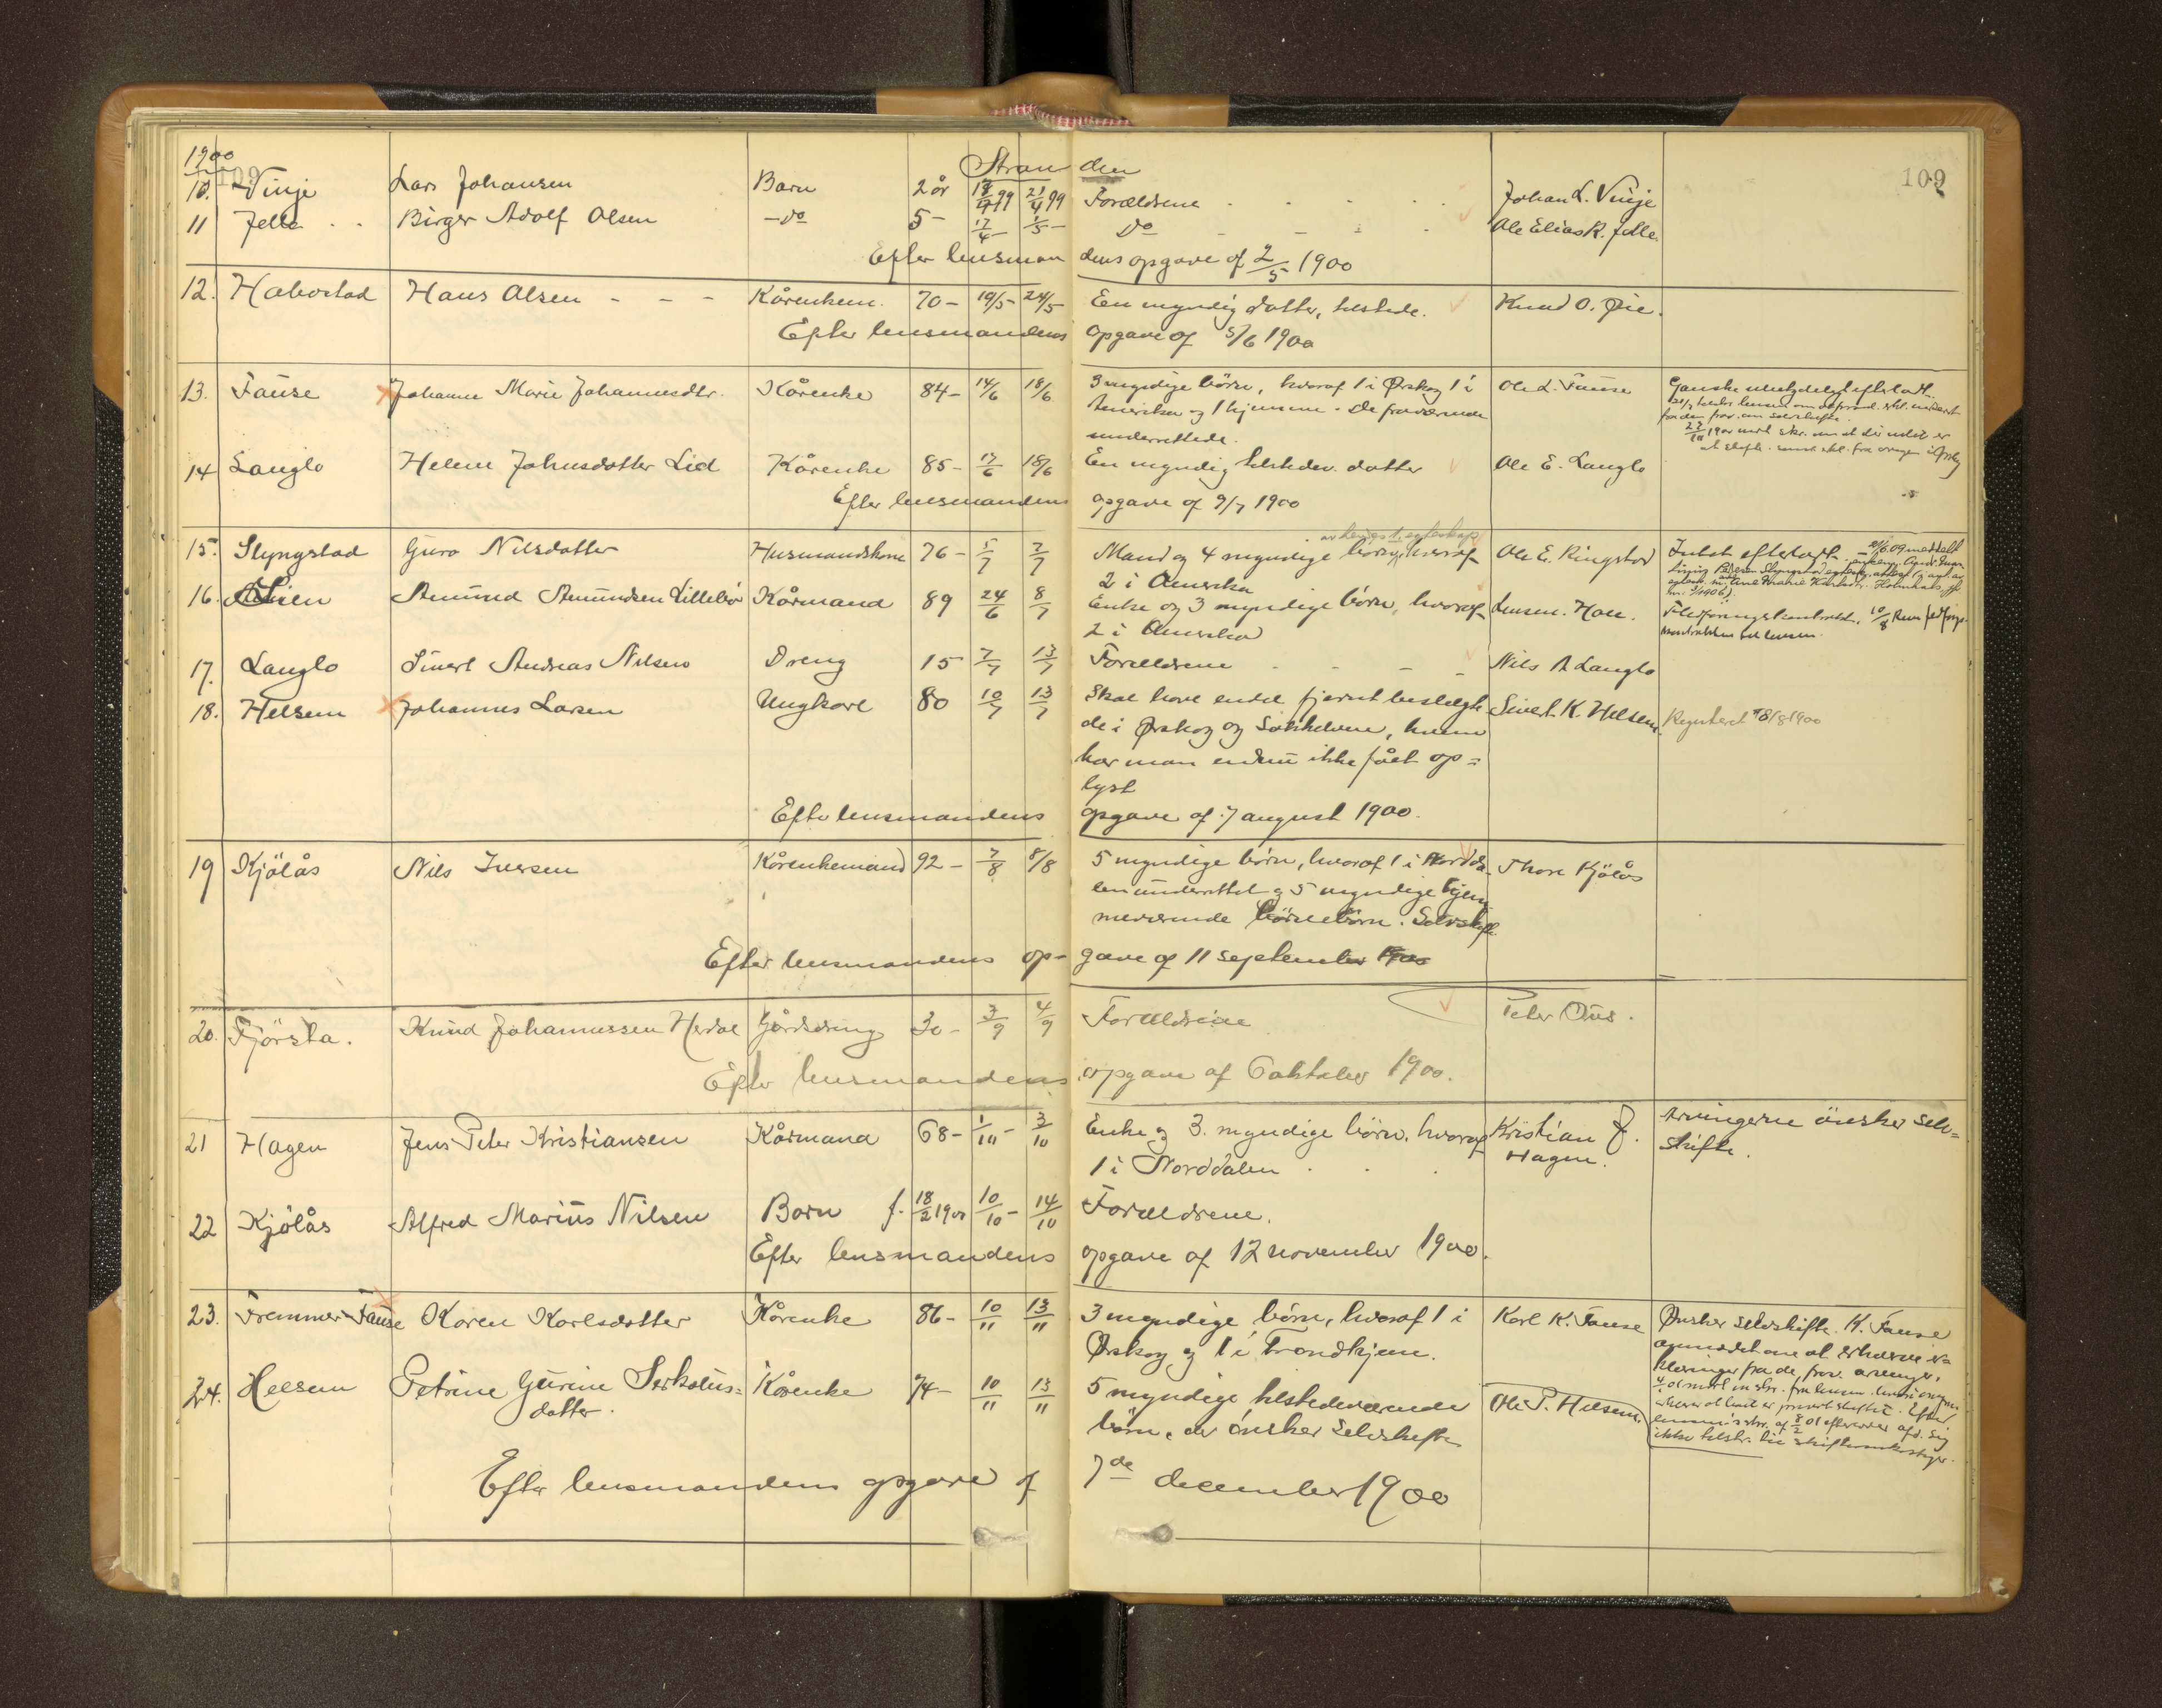 1900
109
Stranden
109
10. Vinje Lars Johansen Barn 2 år 18/4 99 21/4 99 Forældrene Johan L. Vinje
11 Jelle Birger Adolf Olsen - do 5 - 17/4 - 1/5 - Do Ole Elias K. Jelle
Efter lensmandens opgave af 2/5 1900
12. Habostad Hans Olsen - - - Kårenkem. 70 - 19/5 - 24/5 En myndig datter, tilstede. Knud O. Øie.
Efter lensmandens opgave af 5/6 1900
13. Fause Johanne Marie Johannesdtr. Kårenke 84 - 14/6 18/6 3 myndige børn, hvoraf 1 i Ørskog 1 i Ole L. Fause Ganske ubetydeligt efterladt.
Amerika og 1 hjemme. De fraværende
underrettede.
14 Langlo Helene Johnsdatter Lid Kårenke 85 - 17/6 18/6 En myndig tilstedev. datter Ole E. Langlo
Efter lensmandens opgave af 9/7 1900
15. Slyngstad Guro Nilsdatter Husmandskone 76 - 5/7 7/7 Mand og 4 myndige børn, hvoraf Ole E. Ringstad Intet efterladt.
2 i Amerika
16. Lien Amund Amundsen Lillebø Kårmand 89 24/6 8/7 Enke og 3 myndige børn, hvoraf Lensm. Hole. Fledføringskontrakt.
2 i Amerika
17. Langlo Sivert Andreas Nilsen Dreng 15 7/7 13/7 Forældrene - - Nils A Langlo
18. Helsem Johannes Larsen Ungkarl 80 10/7 13/7 Skal have endel fjernt beslægte- Sivert K. Helsem. Registreret 18/8 1900
de i Ørskog og Søkkelven, hvem
har man endnu ikke fået op=
lyst
Efter lensmandens opgave af 7 august 1900.
19 Kjölås Nils Iversen Kårenkemand 92 - 7/8 8/8 5 myndige børn, hvoraf 1 i Nordda- Thore Kjölås
len underrettet og 5 myndige hjem
meværende börnebörn. Selvskifte
Efter lensmandens opgave af 11 september 1900
20. Fjörsta. Knud Johannessen Herdal Gårdsdreng 30 - 3/9 4/9 Forældrene Peter Øus.
Efter lensmandens opgave af 6 oktober 1900.
21 Hagen Jens Peter Kristiansen Kårmand 68 - 1/10 - 3/10 Enke og 3 myndige børn, hvoraf Kristian J. Arvingerne önsker selv=
1 i Norddalen Hagen. skifte.
22 Kjölås Alfred Marius Nilsen Barn f. 18/2 1900 10/10 - 14/10 Forældrene.
Efter lensmandens opgave af 12 november 1900.
23. Fremmer-Fause Karen Karlsdatter Kårenke 86 - 10/11 13/11 3 myndige børn, hvoraf 1 i Karl K. Fause Ønsker selvskifte. K. Fause
Ørskog og 1 i Trondhjem. anmodet om at erhverve er-
klæringer fra de frav. arvinger.
24. Helsem Petrine Gurine Serkolus= Kårenke 74 - 10/11 13/11 5 myndige tilstedeværende Ole P. Helsem.
datter. börn, der önsker selvskifte
Efter lensmandens opgave af 7de december 1900